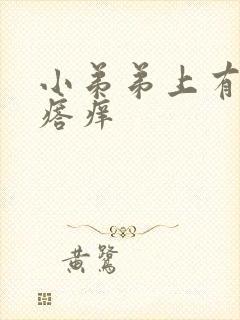 小弟弟上有
痞痒
黄鹭